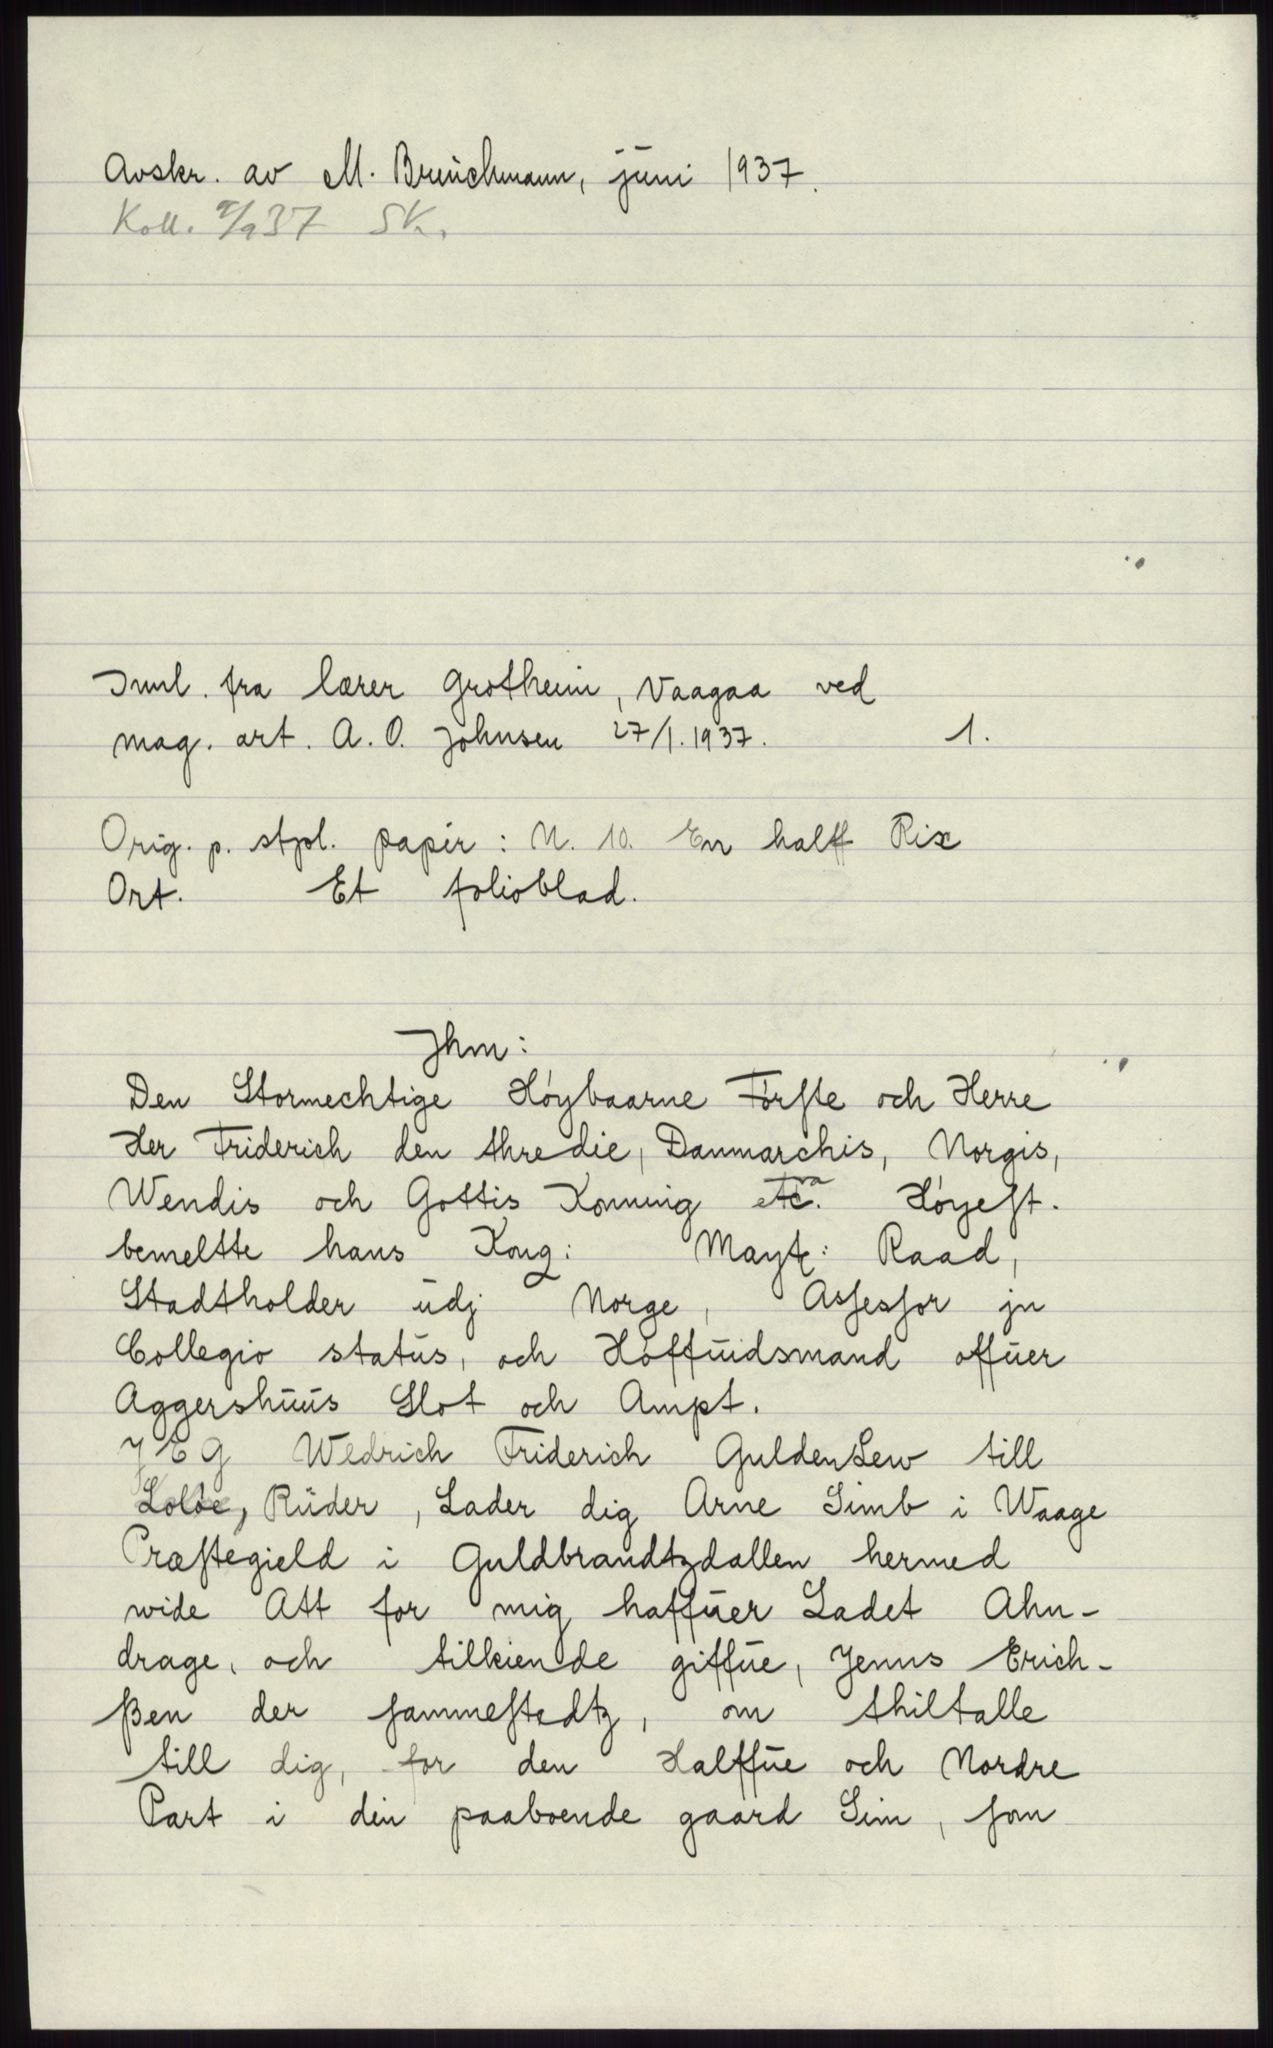 Avskr. av M. Bruuchmann, juni 1937.
Koll. 2/9 37 SK.
Innl. fra lærer Grotheim, Vaagaa ved
mag. art. A. O. Johnsen 27/1. 1937. 1.
Orig. p. stpl. papir: N. 10. En halff Rix
Ort. Et folioblad.
Jhm:
Den Stormechtige Høybaarne Førſte och Herre
Her Friderich den thredie, Danmarchis, Norgis,
Wendis och Gottis Konning etc.ra Høyeſt.
bemeltte hans Kong: Mayt: Raad,
Stadtholder udj Norge, Asſesſor jn
Collegio status, och Høffuidsmand offuer
Aggershuus Slot och Ampt.
JEG Wldrich Friderich GuldenLew till
, Rüder, Lader dig Arne Simb i Waage
Præſtegield i Guldbrandtzdallen hermed
wide Att for mig haffuer Ladet Ahn-
drage, och tilkiende giffue, Jenns Erich-
ßen der ſammeſtedtz, om thiltalle
till dig, for den Halffue och Nordre
Part i din paaboende gaard Sim, ſom